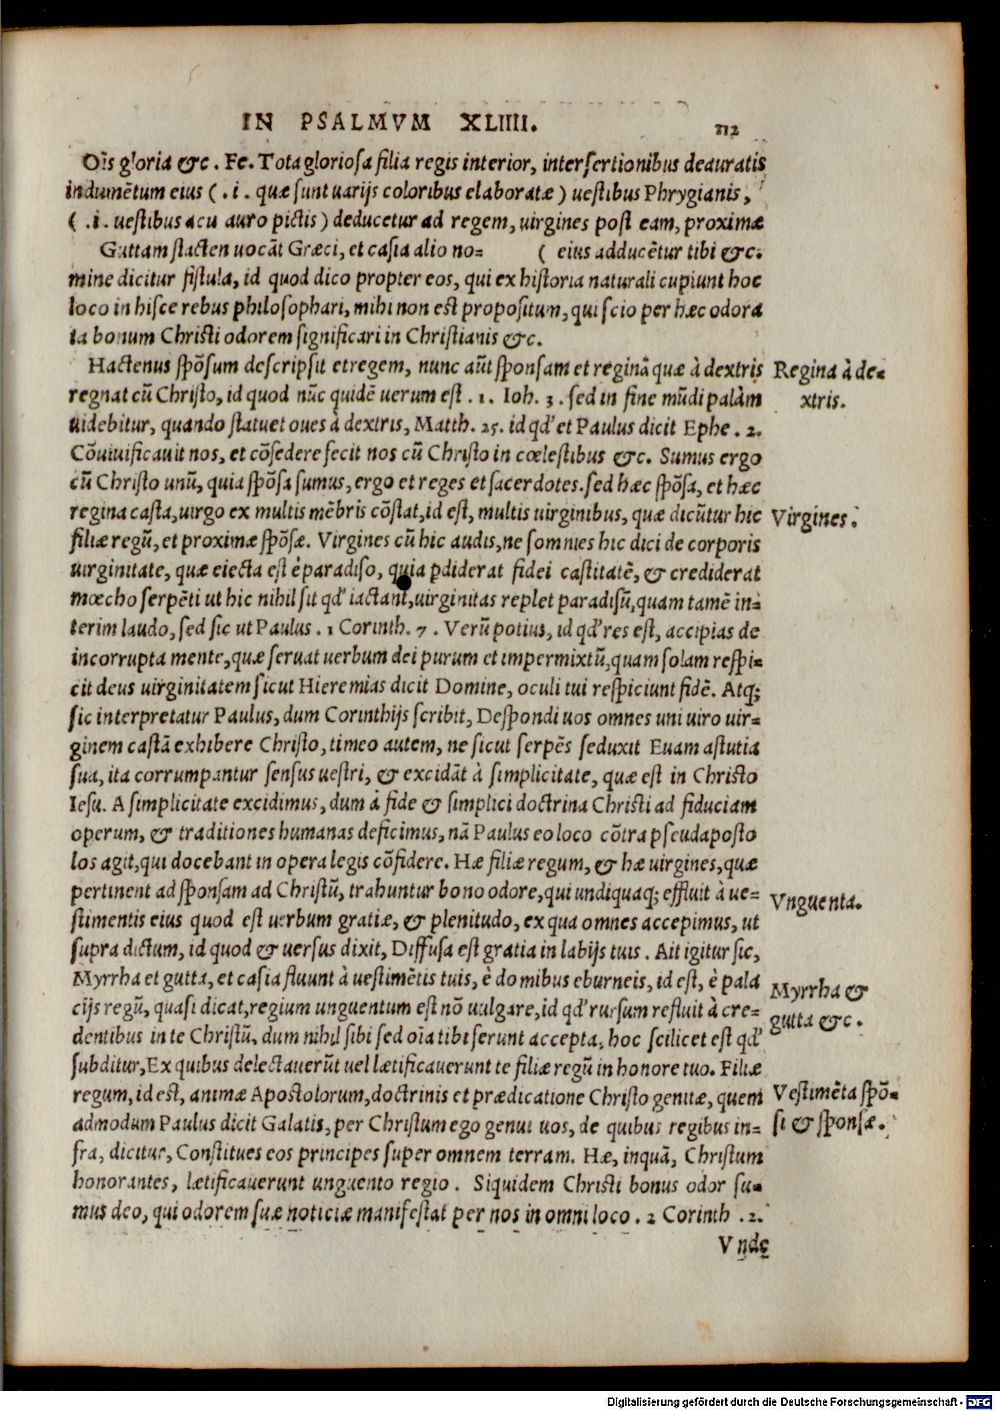 IN PSALMVM XLIIII. 212
Oĩs gloria &c. Fe. Tota gloriosa filia regis interior, intersertionibus deauratis
indumẽtum eius (.i. quæ sunt uarijs coloribus elaboratæ) uestibus Phrygianis,
(.i. uestibus acu auro pictis) deducetur ad regem, uirgines post eam, proximæ
Guttam stacten uocãt Græci, et casia alio no= ( eius adducẽtur tibi &c.
mine dicitur fistula, id quod dico propter eos, qui ex historia naturali cupiunt hoc
loco in hisce rebus philosophari, mihi non est propositum, qui scio per hæc odora
ta bonum Christi odorem significari in Christianis &c.
Hactenus spõsum descripsit et regem, nunc aũt sponsam et reginã quæ à dextris
Regina à de=
regnat cũ Christo, id quod nũc quidẽ uerum est .1. Ioh. 3. sed in fine mũdi palàm
xtris.
uidebitur, quando statuet oues à dextris, Matth. 25. id qď et Paulus dicit Ephe. 2.
Cõuiuificauit nos, et cõsedere fecit nos cũ Christo in cœlestibus &c. Sumus ergo
cũ Christo unũ, quia spõsa sumus, ergo et reges et sacerdotes. sed hæc spõsa, et hæc
regina casta, uirgo ex multis mẽbris cõstat, id est, multis uirginibus, quæ dicũtur hic
Virgines.
filiæ regũ, et proximæ spõsæ. Virgines cũ hic audis, ne somnies hic dici de corporis
uirginitate, quæ eiecta est è paradiso, quia pdiderat fidei castitatẽ, & crediderat
mœcho serpẽti ut hic nihil sit qď iactant, uirginitas replet paradisũ, quam tamẽ in=
terim laudo, sed sic ut Paulus .1 Corinth. 7. Verũ potius, id qď res est, accipias de
incorrupta mente, quæ seruat uerbum dei purum et impermixtũ, quam solam respi=
cit deus uirginitatem sicut Hieremias dicit Domine, oculi tui respiciunt fidẽ. Atq;
sic interpretatur Paulus, dum Corinthijs scribit, Despondi uos omnes uni uiro uir=
ginem castã exhibere Christo, timeo autem, ne sicut serpẽs seduxit Euam astutia
sua, ita corrumpantur sensus uestri, & excidãt à simplicitate, quæ est in Christo
Iesu. A simplicitate excidimus, dum à fide & simplici doctrina Christi ad fiduciam
operum, & traditiones humanas deficimus, nã Paulus eo loco cõtra pseudaposto
los agit, qui docebant in opera legis cõfidere. Hæ filiæ regum, & hæ uirgines, quæ
pertinent ad sponsam ad Christũ, trahuntur bono odore, qui undiquaq; effluit à ue=
Vnguenta.
stimentis eius quod est uerbum gratiæ, & plenitudo, ex qua omnes accepimus, ut
supra dictum, id quod & uersus dixit, Diffusa est gratia in labijs tuis. Ait igitur sic,
Myrrha et gutta, et casia fluunt à uestimẽtis tuis, è domibus eburneis, id est, è pala
Myrrha &
cijs regũ, quasi dicat, regium unguentum est nõ uulgare, id qď rursum refluit à cre=
gutta &c.
dentibus in te Christũ, dum nihil sibi sed oĩa tibi ferunt accepta, hoc scilicet est qď
subditur, Ex quibus delectauerũt uel lætificauerunt te filiæ regũ in honore tuo. Filiæ
regum, id est, animæ Apostolorum, doctrinis et prædicatione Christo genitæ, quem
Vestimẽta spõ=
admodum Paulus dicit Galatis, per Christum ego genui uos, de quibus regibus in=
si & sponsæ.
fra, dicitur, Constitues eos principes super omnem terram. Hæ, inquã, Christum
honorantes, lætificauerunt unguento regio. Siquidem Christi bonus odor su=
mus deo, qui odorem suæ noticiæ manifestat per nos in omni loco. 2 Corinth .2.
Vnde
Digitalisierung gefördert durch die Deutsche Forschungsgemeinschaft - DFG